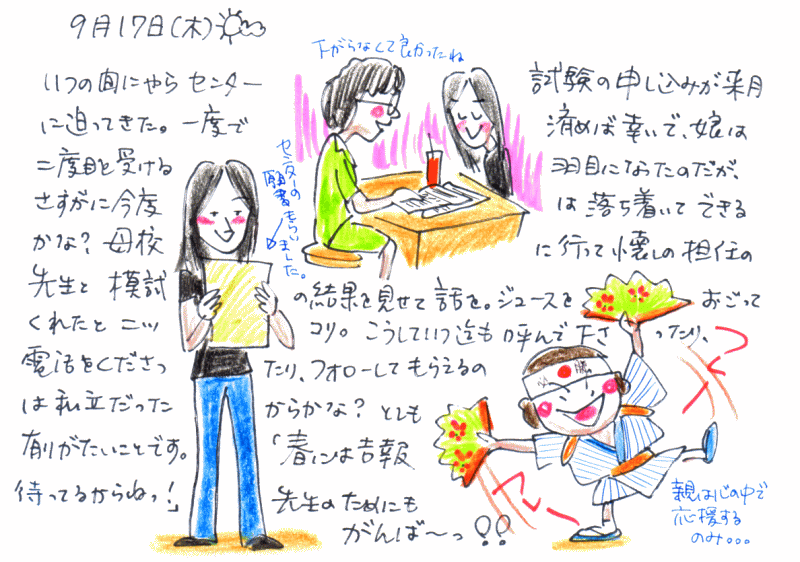 9月17日(木)
いつの間にやら センター 試験の申し込みが来月
に迫ってきた。一度で 済めば幸いで、娘は
二度目を受ける 羽目になったのだが、
さすがに今度 は落ち着いてできる
かな? 母校 に行って懐しの担任の
先生と 模試 の結果を見せて話を。ジュースを おごって
くれたとニッ コリ。こうしていつ迄も呼んで下さ ったり、
電話をくださっ たり、フォローしてもらえるの
は私立だった からかな? とても
有がたいことです。 「春には吉報
待ってるからねっ!」 先生のためにも
がんば〜っ!!
下がらなくて良かったね
センターの
願書をもらい
ました。
必 勝
親は心の中で
応援する
のみ...